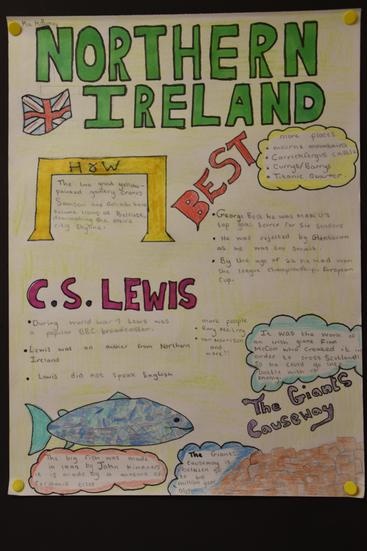 NORTHERN
IRELAND
more places
• mourne mountains
• Carrickfergus castle
• Currys/Barrys
• Titanic Quarter
H & W
The two great yellow-
painted gallery cranes
Samson and Goliath have
become icons of Belfast,
dominating the entire
city skyline.
BEST
• George Best he was MAN U's
top goal scorer for six seasons
• He was rejected by Glentoran
as he was too small
• By the age of 22 he had won
the league championship, European
Cup.
C.S. LEWIS
• During world war 2 Lewis was
a popular BBC broadcaster.
• Lewis was an author from Northern
Ireland
• Lewis did not speak English
• more people
• Rory McIlroy
• Van morrison
and
more!!
It was the work of
an irish giant Finn
McCool who created it in
order to cross Scotland
So he could do
battle with
enemy
The Giants
Causeway
The big fish was made
in 1999 by John Kindness
it is made by a mosaic of
ceramic tiles
The Giants
causeway is
between 50
to 60
million year
old